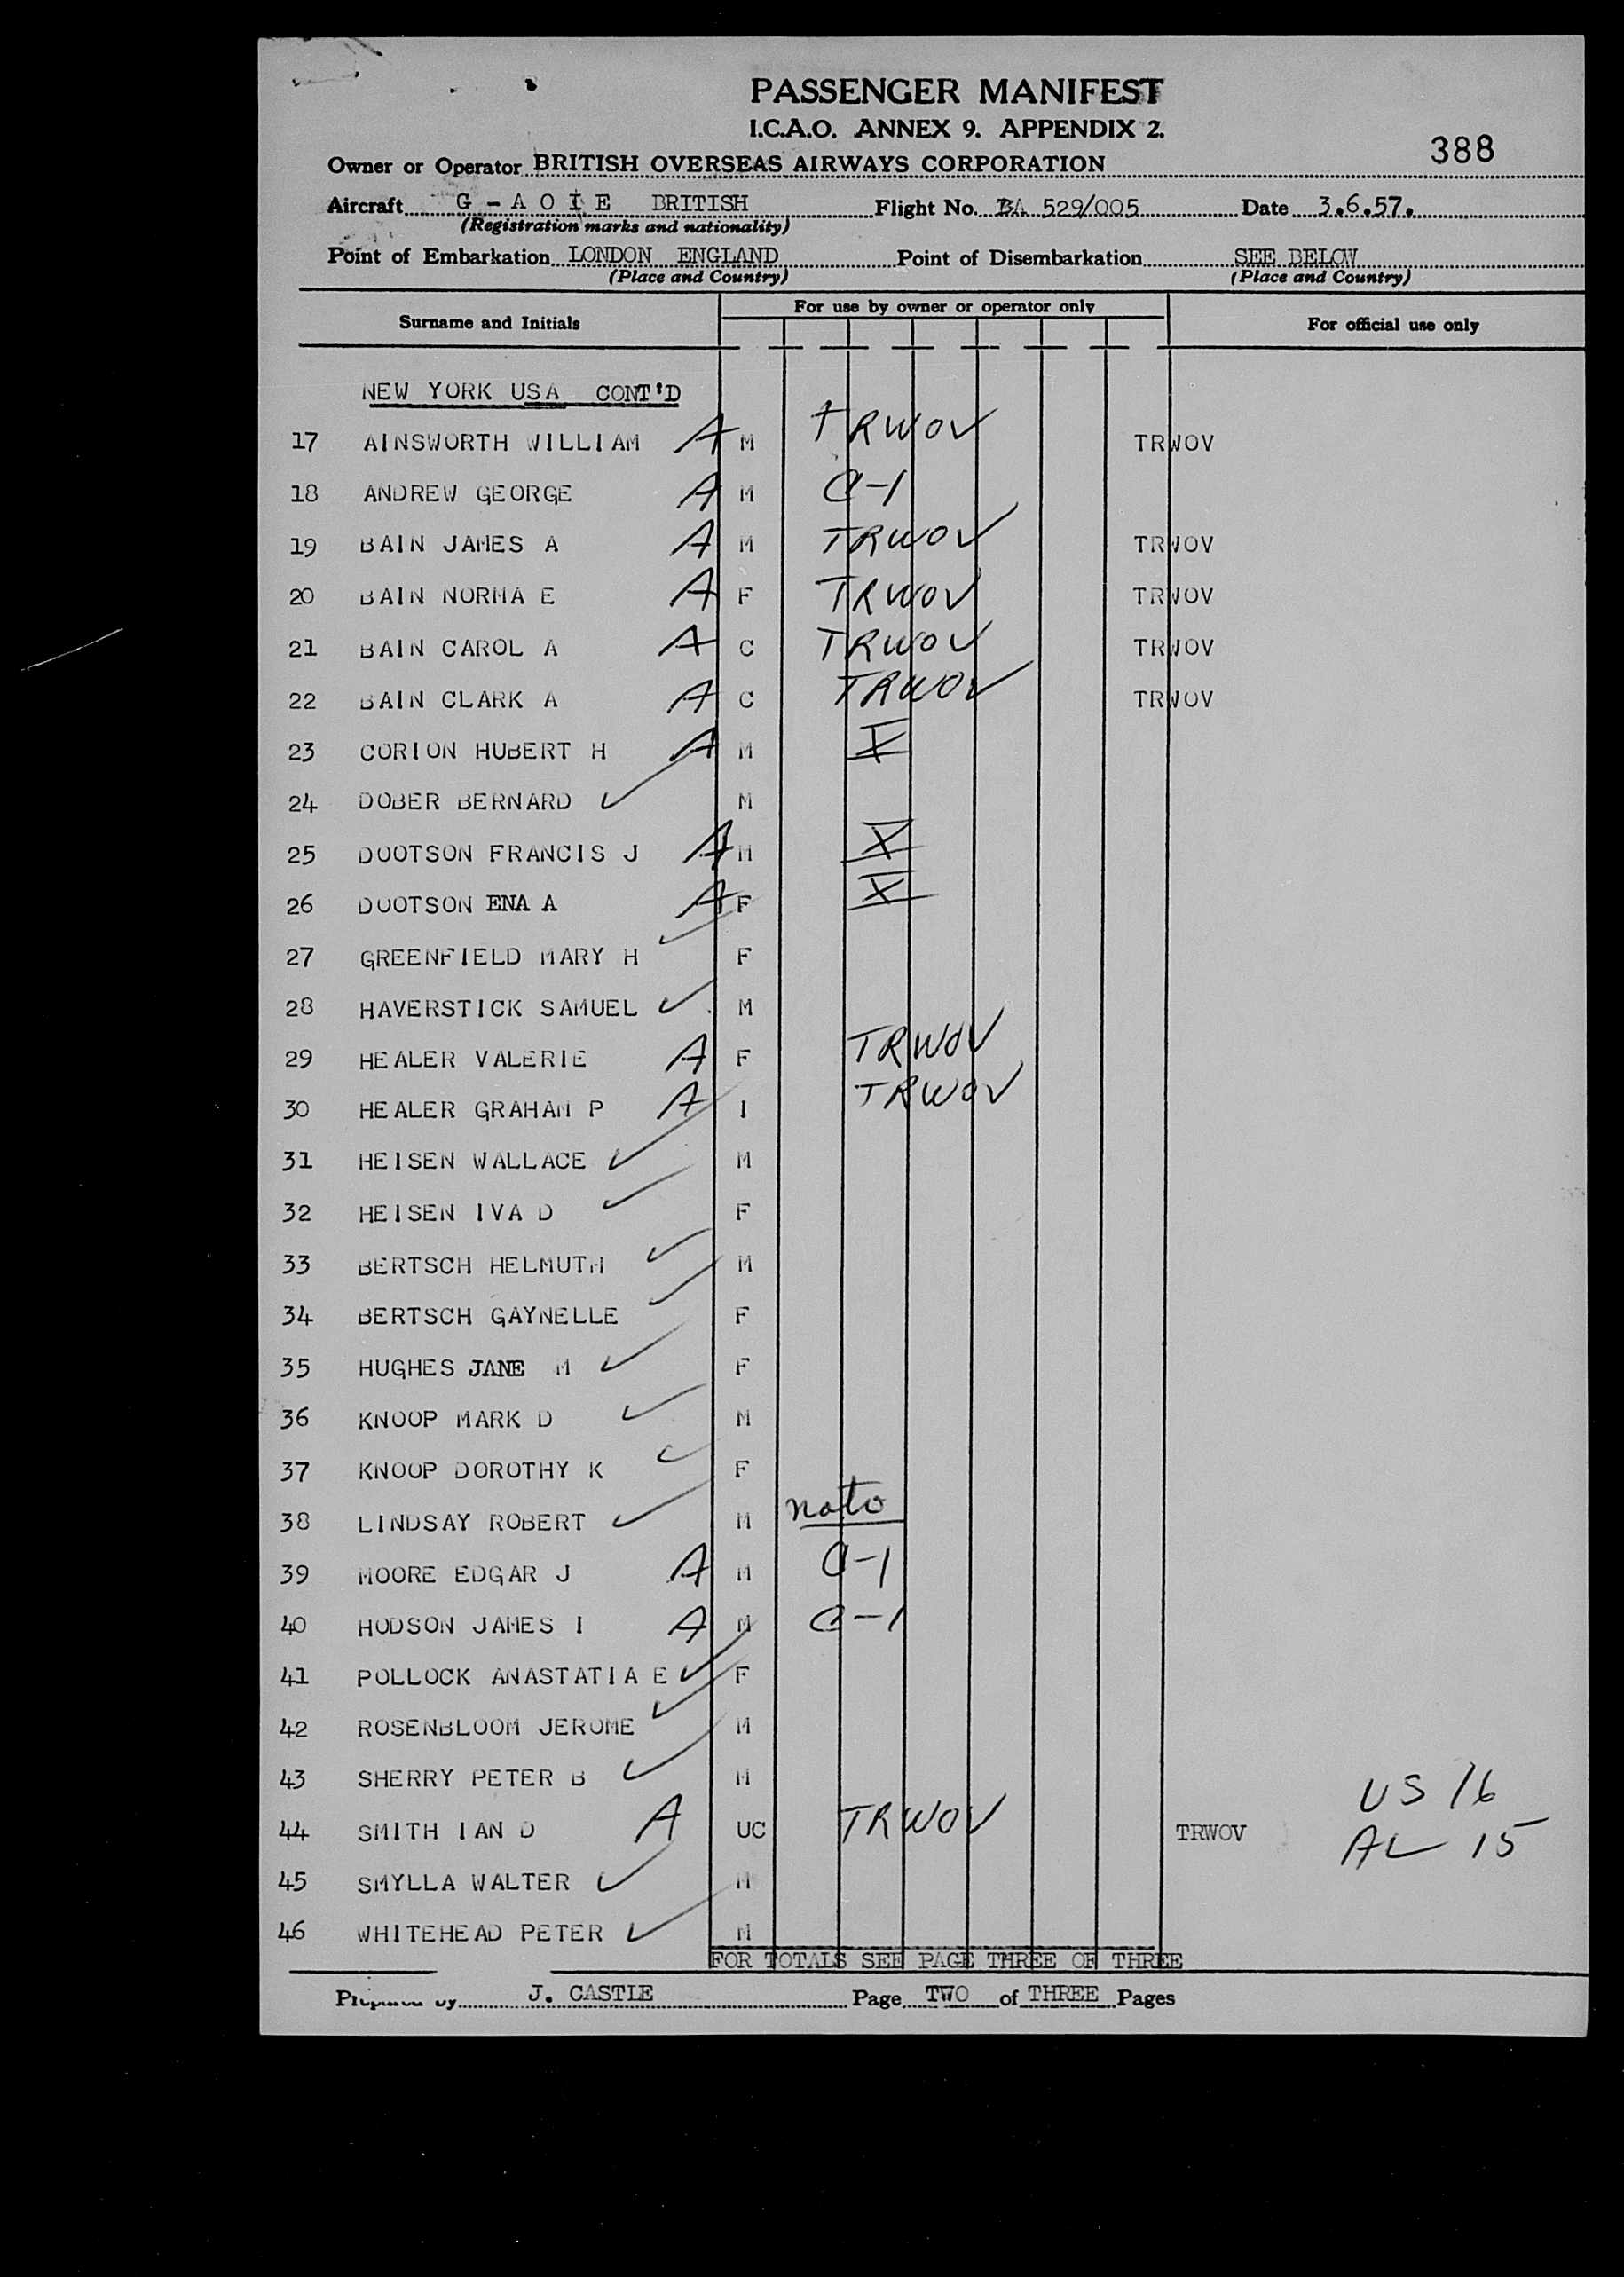 PASSENGER MANIFEST
I.C.A.O. ANNEX 9. APPENDIX 2.
388
Owner or Operator BRITISH OVERSEAS AIRWAYS CORPORATION
Aircraft G - A O I E BRITISH Flight No. BA 529/005 Date 3.6.57.
(Registration marks and nationality)
Point of Embarkation LONDON ENGLAND Point of Disembarkation SEE BELOW
(Place and Country) (Place and Country)
Surname and Initials For use by owner or operator only For official use only
NEW YORK USA CONT'D
17 AINSWORTH WILLIAM A M TRWOV TRWOV
18 ANDREW GEORGE A M G-1
19 BAIN JAMES A A M TRWOV TRWOV
20 BAIN NORMA E A F TRWOV TRWOV
21 BAIN CAROL A A C TRWOV TRWOV
22 BAIN CLARK A A C TRWOV TRWOV
23 CORION HUBERT H A M X
24 DOBER BERNARD ✓ M
25 DOOTSON FRANCIS J A M X
26 DOOTSON ENA A A F X
27 GREENFIELD MARY H ✓ F
28 HAVERSTICK SAMUEL ✓ M
29 HEALER VALERIE A F TRWOV
30 HEALER GRAHAM P A I TRWOV
31 HEISEN WALLACE ✓ M
32 HEISEN IVA D ✓ F
33 BERTSCH HELMUTH ✓ M
34 BERTSCH GAYNELLE ✓ F
35 HUGHES JANE M ✓ F
36 KNOOP MARK D ✓ M
37 KNOOP DOROTHY K ✓ F
38 LINDSAY ROBERT ✓ M nato
39 MOORE EDGAR J A M G-1
40 HODSON JAMES I A M G-1
41 POLLOCK ANASTATIA E ✓ F
42 ROSENBLOOM JEROME ✓ M
43 SHERRY PETER B ✓ M
US 16
44 SMITH IAN D A UC TRWOV TRWOV AL 15
45 SMYLLA WALTER ✓ M
46 WHITEHEAD PETER ✓ M
FOR TOTALS SEE PAGE THREE OF THREE
Prepared by J. CASTLE Page TWO of THREE Pages